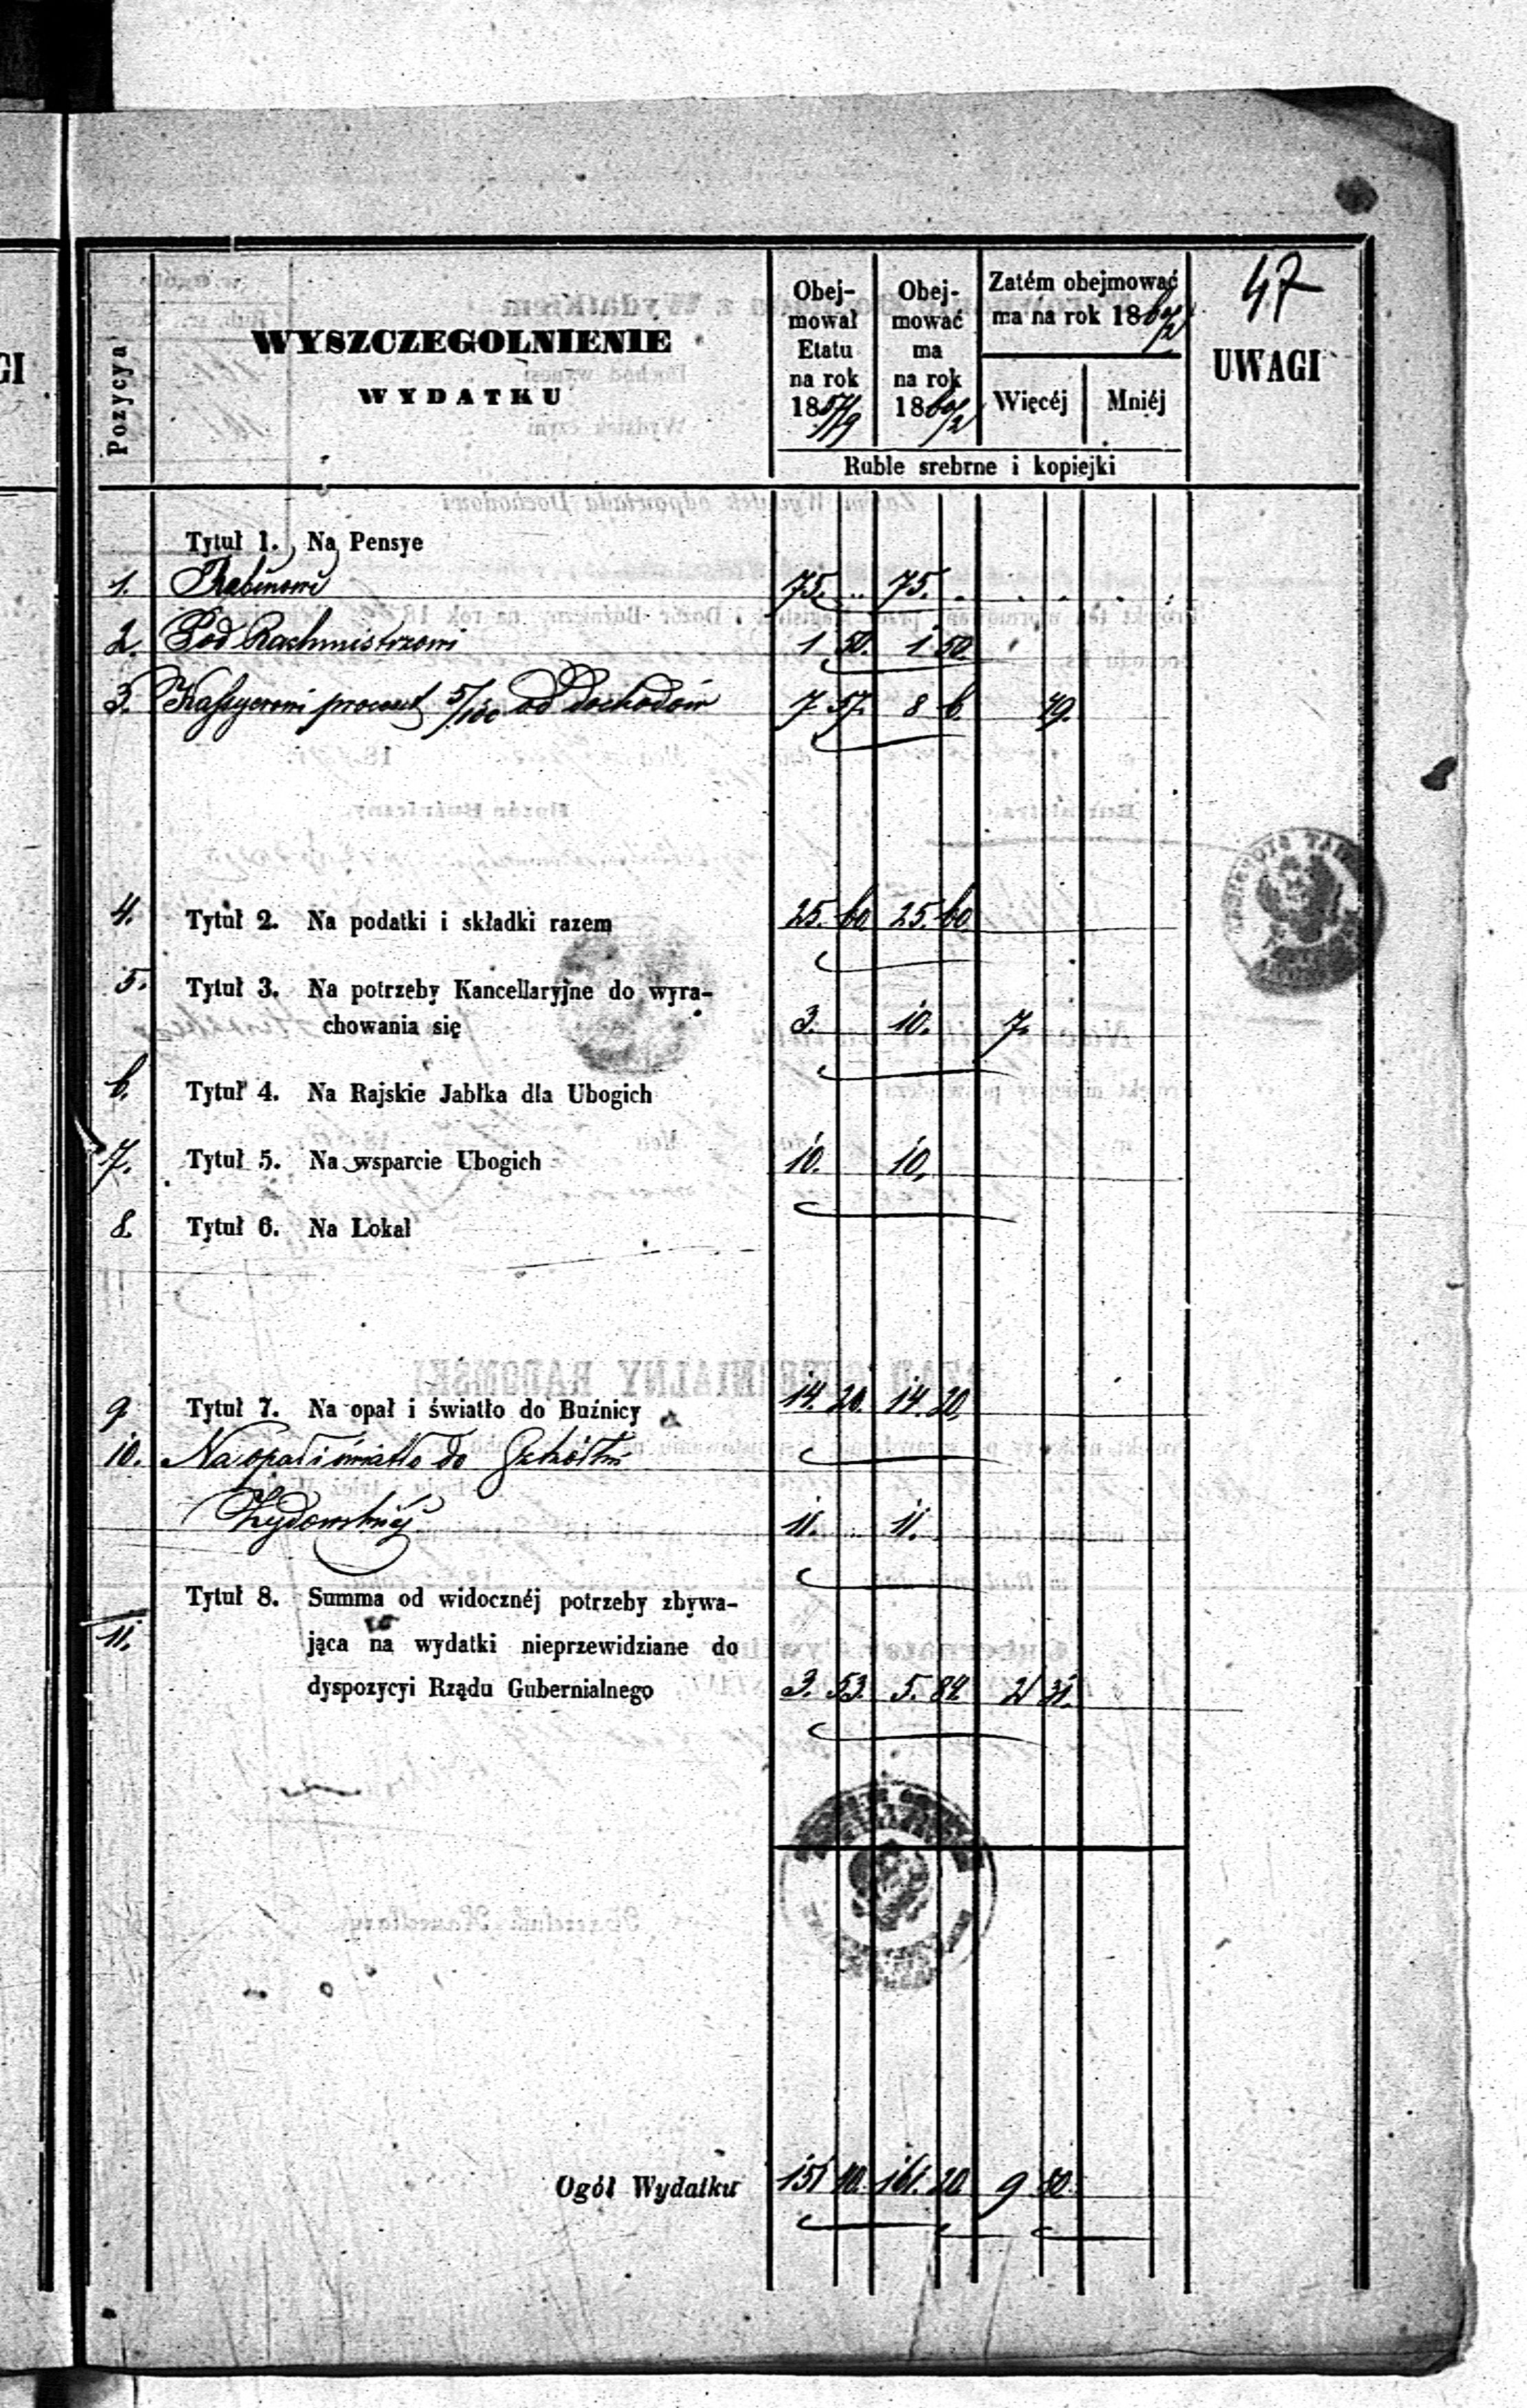 47
WYSZCZEGOLNIENIE
WYDATKU
Pozycya
Obej-
mował
Etatu
na rok
1857/9
Obej-
mować
ma
na rok
1860/2
Zatém obejmować
ma na rok 1860/2
Więcéj Mniéj
UWAGI
Ruble srebrne i kopiejki
Tytuł 1. Na Pensye
1. Rabinowi 75. .. 75. . . . . .
2. Pod Rachmistrzowi 1 50. 1 50.
3. Kassyerowi procent 5/100 od Dochodów 7 57. 8 6. 49.
4. Tytuł 2. Na podatki i składki razem 25. 60 25. 60
5. Tytuł 3. Na potrzeby Kancellaryjne do wyra-
chowania się 3. 10. 7.
6. Tytuł 4. Na Rajskie Jabłka dla Ubogich
7. Tytuł 5. Na wsparcie Ubogich 10. 10.
8. Tytuł 6. Na Lokal
9 Tytuł 7. Na opał i światło do Buźnicy 14. 20. 14. 20
10. Na opał i światło do Szkółki
Żydowskiéj 11. .. 11.
Tytuł 8. Summa od widocznéj potrzeby zbywa-
11. jąca na wydatki nieprzewidziane do
dyspozycyi Rządu Gubernialnego 3. 53. 5. 84. 2 31.
Ogół Wydatku 151 40. 161. 20 9 80.